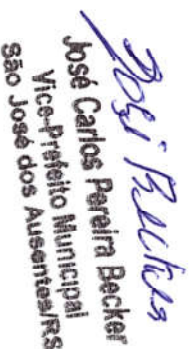 José Carlos Pereira Becker
Vice-Prefeito Municipal
São José dos Ausentes/RS